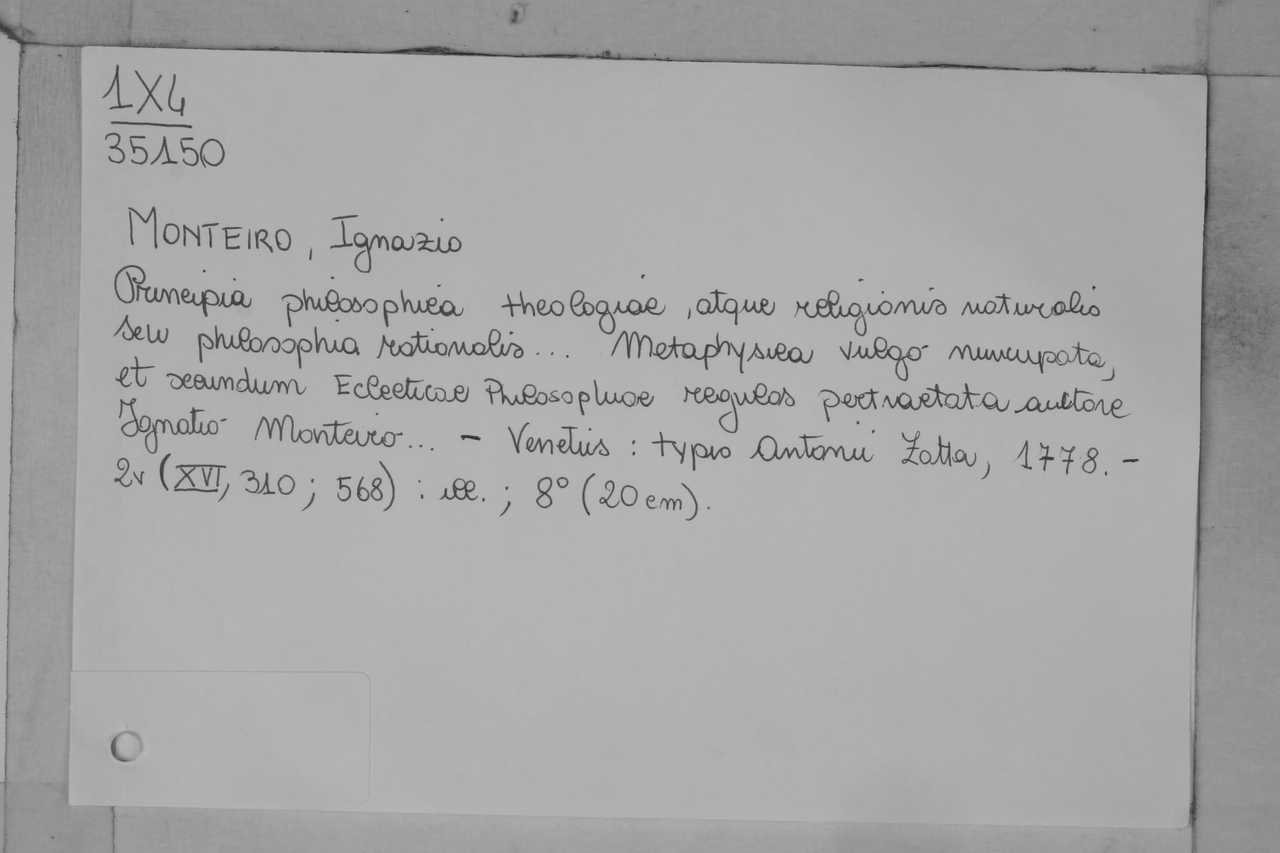 1X4
35150
MONTEIRO, Ignazio
Principia philosophica theologiae, atque religionis naturalis
seu philosophia rationalis... Metaphysica vulgo nuncupata,
et secundum Eclecticae Philosophiae regulas pertractata auctore
Ignatio Monteiro... - Venetiis : typis Antonii Zatta, 1778. -
2v (XVI, 310 ; 568) : ill. ; 8° (20 cm).